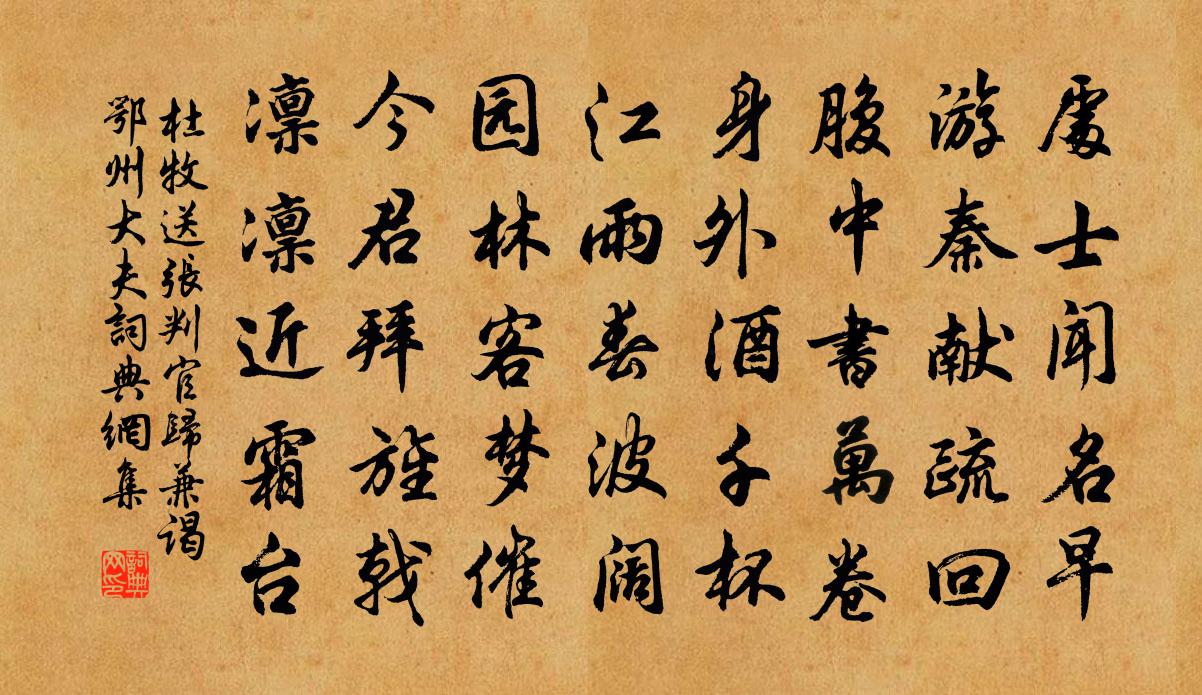 處士闻名早
游秦献疏回
腹中書萬卷
身外酒千杯
江雨春波阔
园林客梦催
今君拜旌戟
凛凛近霜台
杜牧送張判官歸兼謁
鄂州大夫詞典網集
詞典
网印